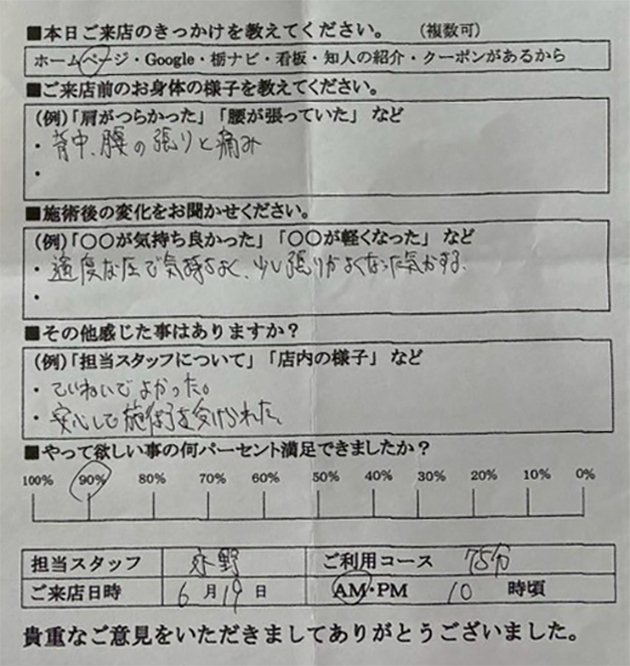 ■本日ご来店のきっかけを教えてください。 (複数可)
ホームページ・Google・栃ナビ・看板・知人の紹介・クーポンがあるから
■ご来店前のお身体の様子を教えてください。
(例)「肩がつらかった」「腰が張っていた」 など
・背中、腰の張りと痛み
・
■施術後の変化をお聞かせください。
(例)「〇〇が気持ち良かった」「〇〇が軽くなった」 など
・適度な圧で気持ちよく、少し張りがよくなった気がする。
・
■その他感じた事はありますか?
(例)「担当スタッフについて」「店内の様子」 など
・ていねいでよかった。
・安心して施術を受けられた。
■やって欲しい事の何パーセント満足できましたか?
100% 90% 80% 70% 60% 50% 40% 30% 20% 10% 0%
担当スタッフ 永野 ご利用コース 75分
ご来店日時 6月19日 AM・PM 10時頃
貴重なご意見をいただきましてありがとうございました。